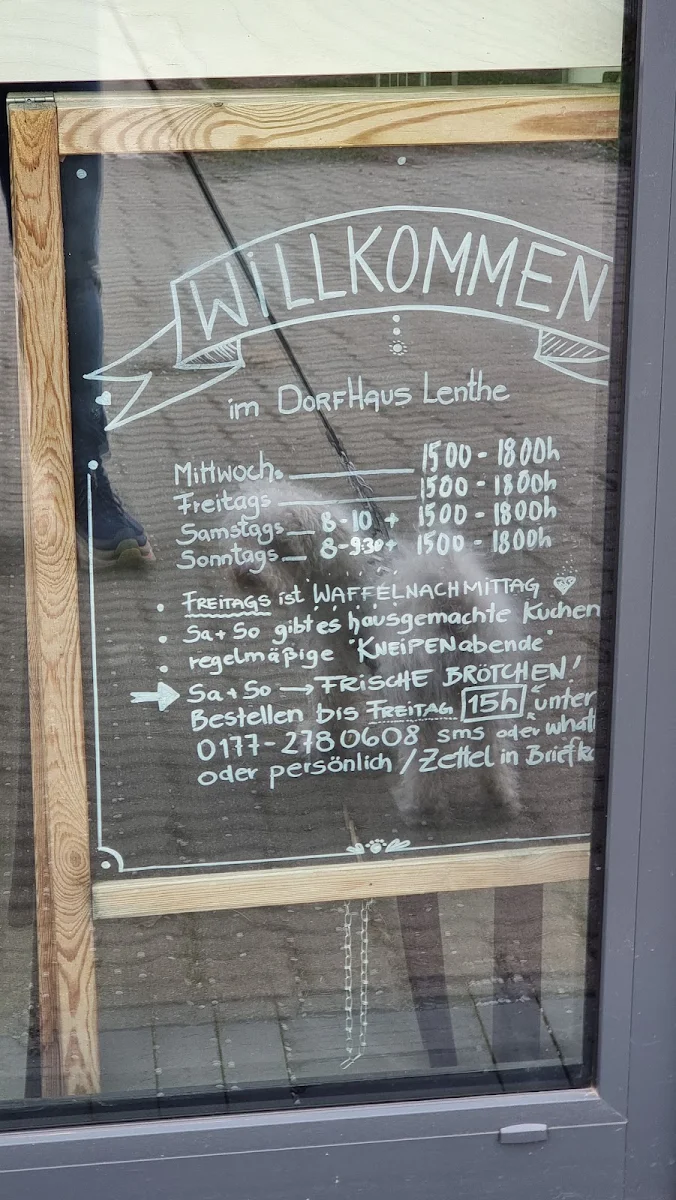 WiLLKOMMEN
im DORFHaus Lenthe
Mittwochs 1500 - 1800h
Freitags 1500 - 1800h
Samstags 8-10 + 1500 - 1800h
Sonntags 8-930+ 1500 - 1800h
• FREITAGS ist WAFFELNACHMiTTAG
• Sa + So gibt es hausgemachte Kuchen
• regelmäßige "KNEiPENabende"
Sa + So → FRiSCHE BRÖTCHEN!
Bestellen bis FREiTAG 15h unter
0177-2780608 sms oder what
oder persönlich / Zettel in Briefk